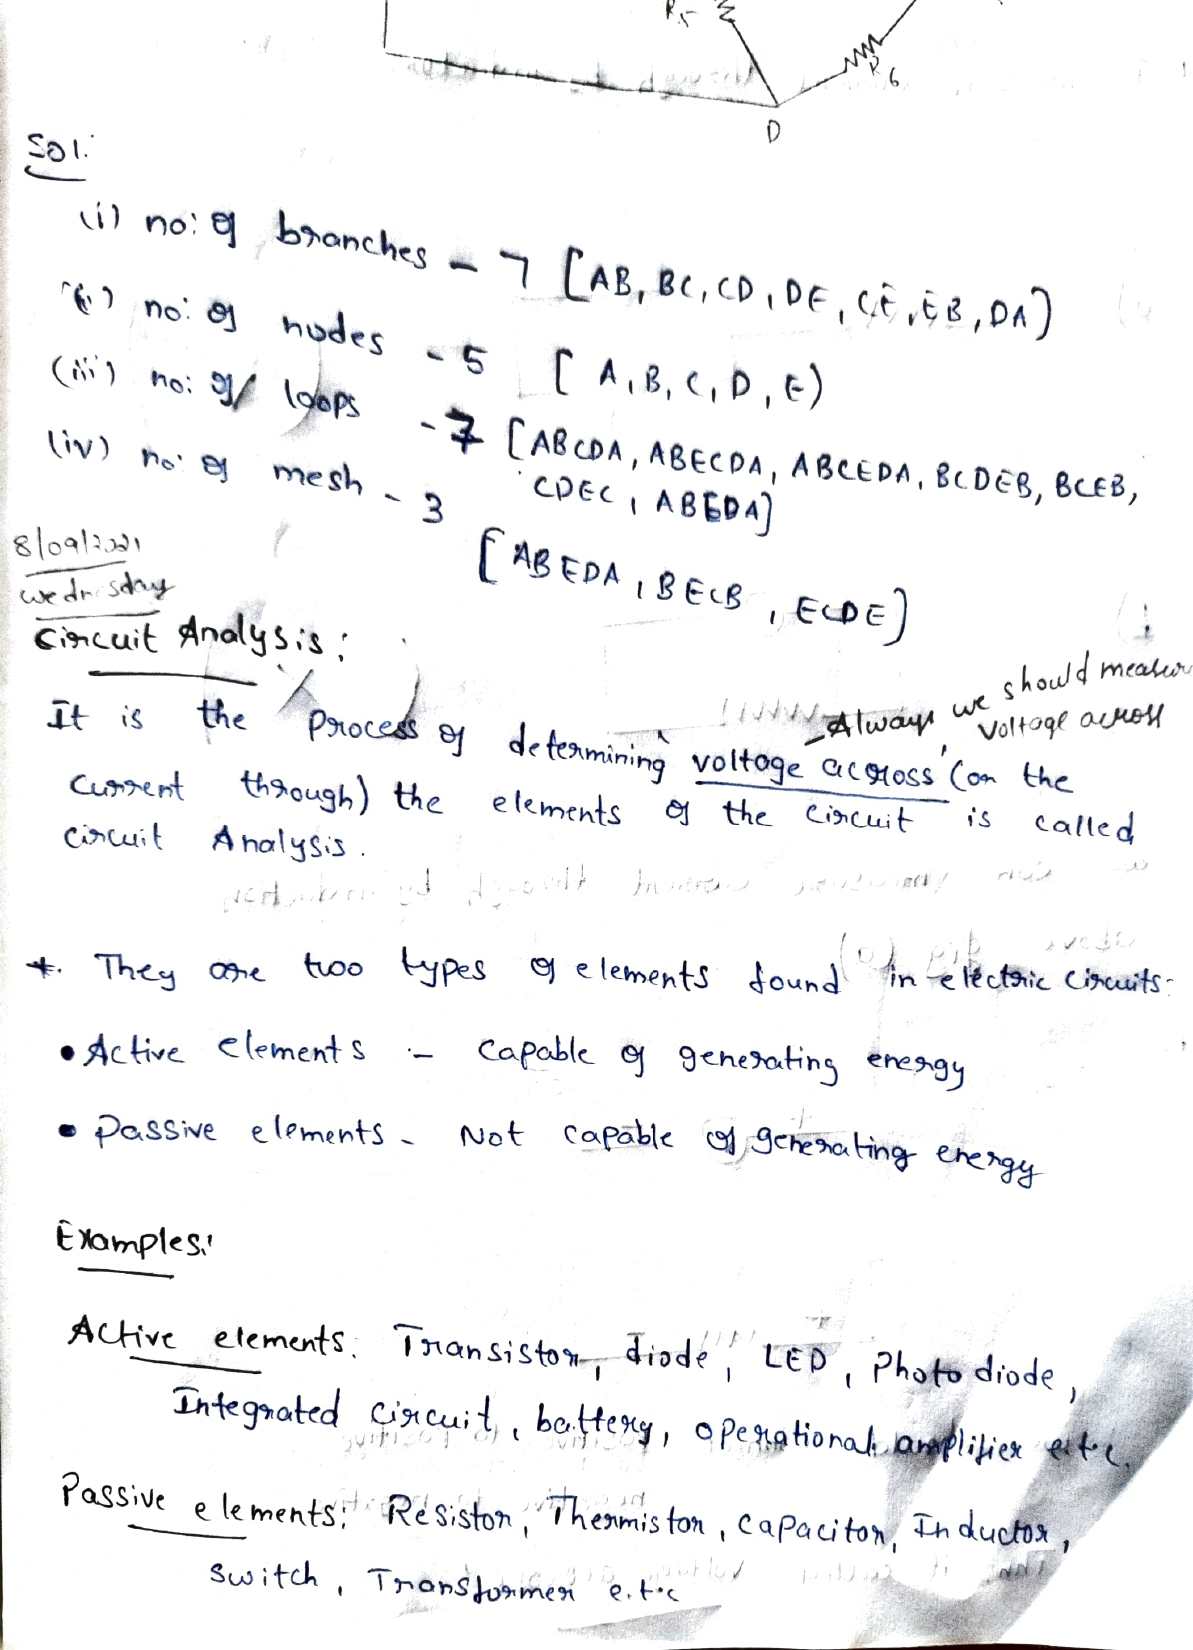 R5
R6
D
Sol:
(i) no: of branches - 7 [AB, BC, CD, DE, CE, EB, DA]
(ii) no: of nodes - 5 [A, B, C, D, E)
(iii) no: of loops - 7 [ABCDA, ABECDA, ABCEDA, BCDEB, BCEB,
CDEC, ABEDA]
(iv) no: of mesh - 3 [ABEDA, BECB, ECDE]
8/09/2021
Wednesday
Circuit Analysis:
Always we should measur
voltage across
It is the process of determining voltage across (or the
current through) the elements of the circuit is called
circuit Analysis.
*. They are two types of elements found in electric circuits:
• Active elements :- capable of generating energy
• Passive elements - Not capable of generating energy
Examples:
Active elements: Transistor, diode, LED, Photo diode,
Integrated circuit, battery, operational amplifier e.t.c.
Passive elements: Resistor, Thermistor, capacitor, Inductor,
switch, Transformer e.t.c